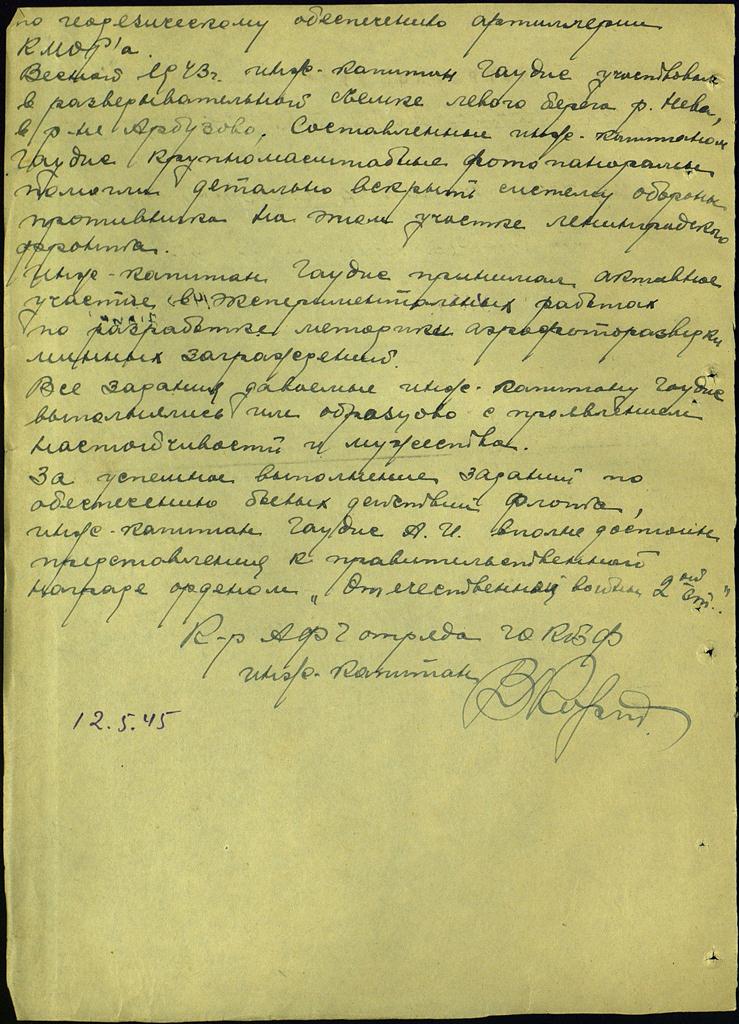 по геодезическому обеспечению артиллерии
КМОР'а.
Весной 1943г. инж-капитан Гаудис участвовал
в развед
съемке левого берега р. Нева,
в р-не Арбузово. Составленные инж-капитаном
Гаудис крупномасштабные фотопанорамы
помогли детально вскрыть систему обороны
противника на этом участке ленинградского
фронта.
Инж-капитан Гаудис принимал активное
участие в экспериментальных работах
по разработке методики аэрофоторазведки
минных заграждений.
Все задания даваемые инж-капитану Гаудис
выполнялись им образцово с проявлением
настойчивости и мужества.
За успешное выполнение заданий по
обеспечению боевых действий флота,
инж-капитан Гаудис А. И. вполне достоин
представления к правительственной
награде орденом "Отечественной войны 2ой ст."
К-р АФГ отряда ГО КБФ
инж-капитан
12.5.45